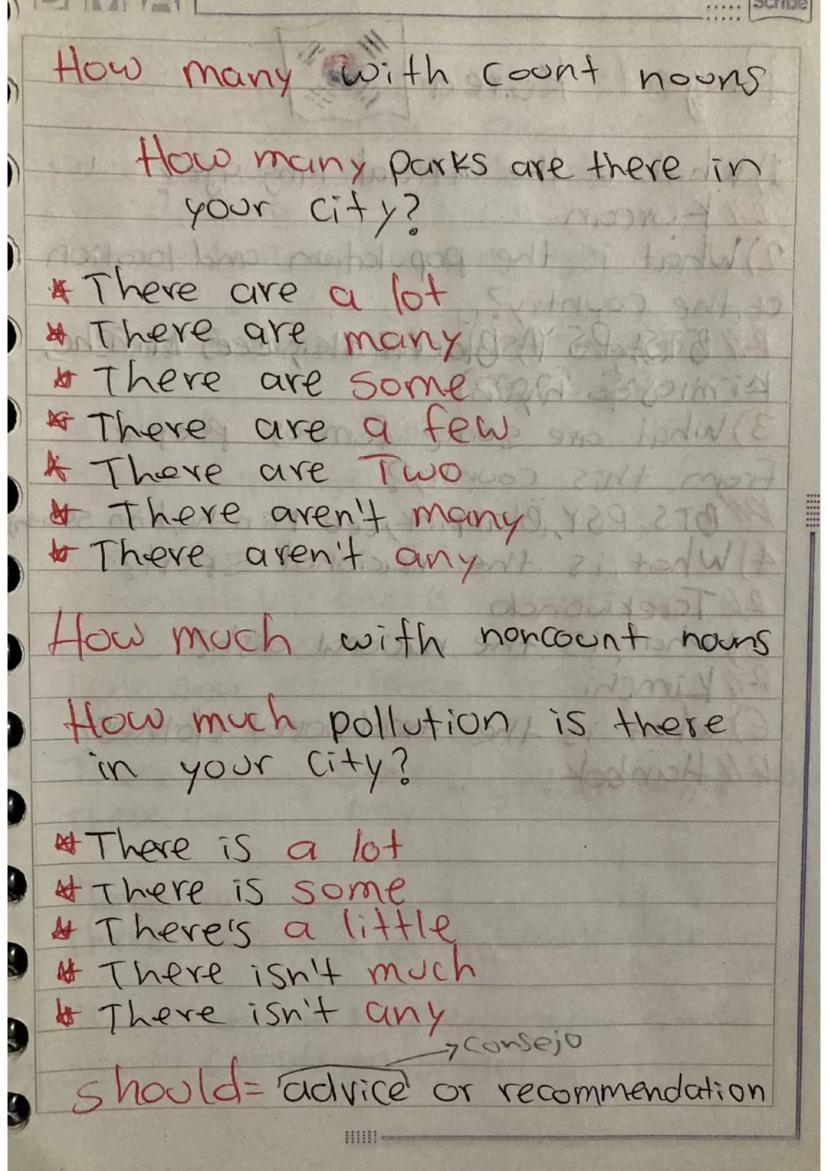 Scribe
How many with count nouns
How many parks are there in
your city?
* There are a lot
* There are many
* There are some
* There are a few
* There are Two
* There aren't many
* There aren't any
How much with noncount nouns
How much pollution is there
in your city?
* There is a lot
* There is some
* There's a little
* There isn't much
* There isn't any
consejo
should= advice or recommendation